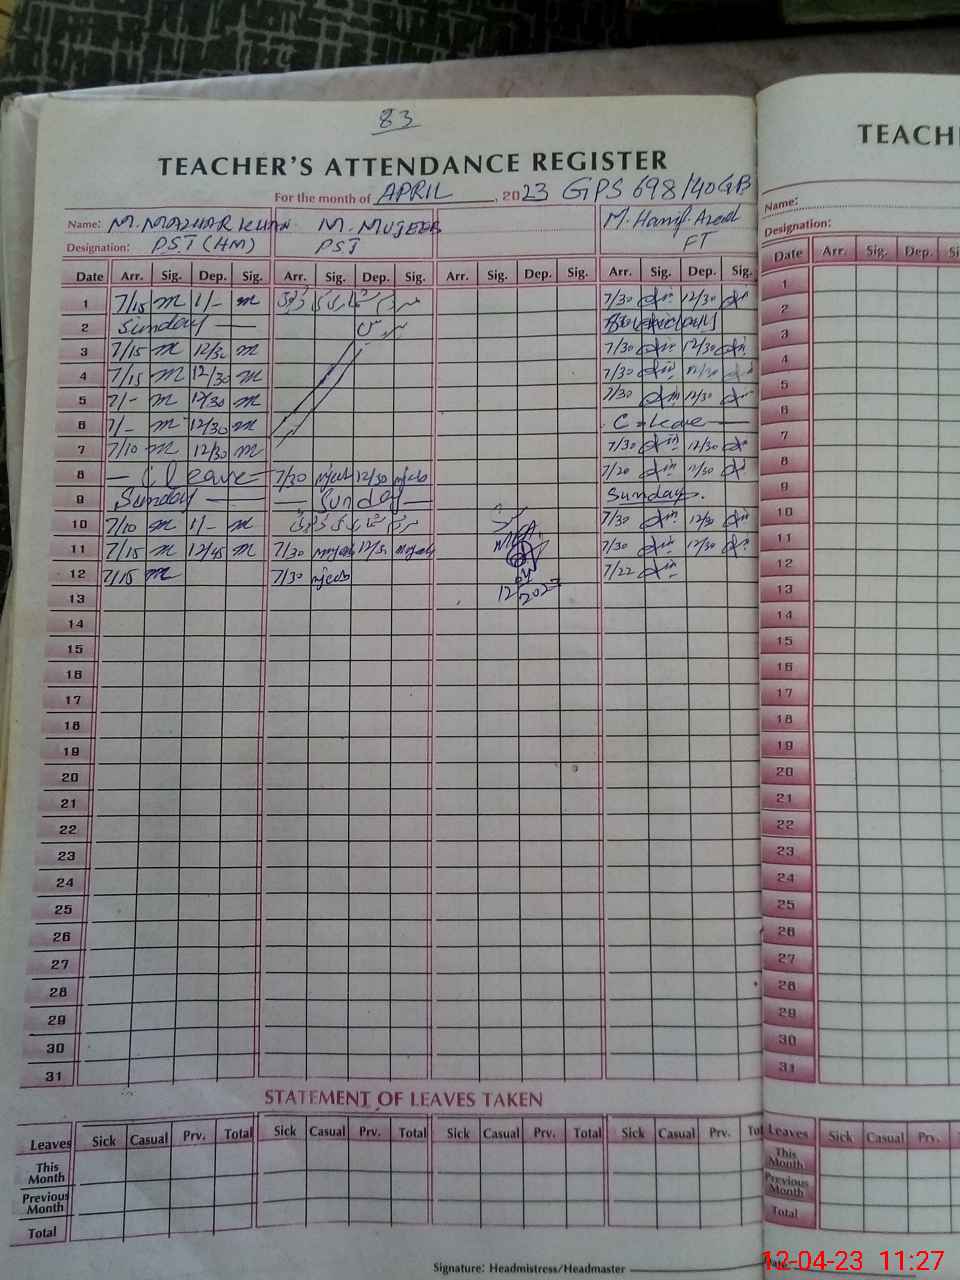 83
TEACHER'S ATTENDANCE REGISTER
For the month of APRIL, 2023 GPS 698/40GB
Name: M. MAZHAR KHAN M. MUJEEB M. Hanif
Designation: PST (HM) PST FT
Date Arr. Sig. Dep. Sig. Arr. Sig. Dep. Sig. Arr. Sig. Dep. Sig. Arr. Sig. Dep. Sig.
1 7/15 m 1/- m 7/30 12/30
2 Sunday —
3 7/15 m 12/30 m 7/30 12/30
4 7/15 m 12/30 m 7/30 12/30
5 7/- m 12/30 m 7/30 12/30
6 7/- m 12/30 m C-Leave —
7 7/10 m 12/30 m 7/30 12/30
8 — C leave — 7/30 mjeeb 12/30 mjeeb
9 Sunday — — Sunday — Sunday.
10 7/10 m 1/- m 7/30 12/30
11 7/15 m 12/45 m 7/30 mujeeb mujeeb 7/30 12/30
12 7/15 m 7/30 mjeeb 7/22
12/04/2023
13
14
15
16
17
18
19
20
21
22
23
24
25
26
27
28
29
30
31
STATEMENT OF LEAVES TAKEN
Leaves Sick Casual Prv. Total Sick Casual Prv. Total Sick Casual Prv. Total Sick Casual Prv. Tot
This Month
Previous Month
Total
Signature: Headmistress/Headmaster
TEACH
Name:
Designation:
Date Arr. Sig. Dep. S
1
2
3
4
5
6
7
8
9
10
11
12
13
14
15
16
17
18
19
20
21
22
23
24
25
26
27
28
29
30
31
Leaves Sick Casual Prv.
This Month
Previous Month
Total
12-04-23 11:27